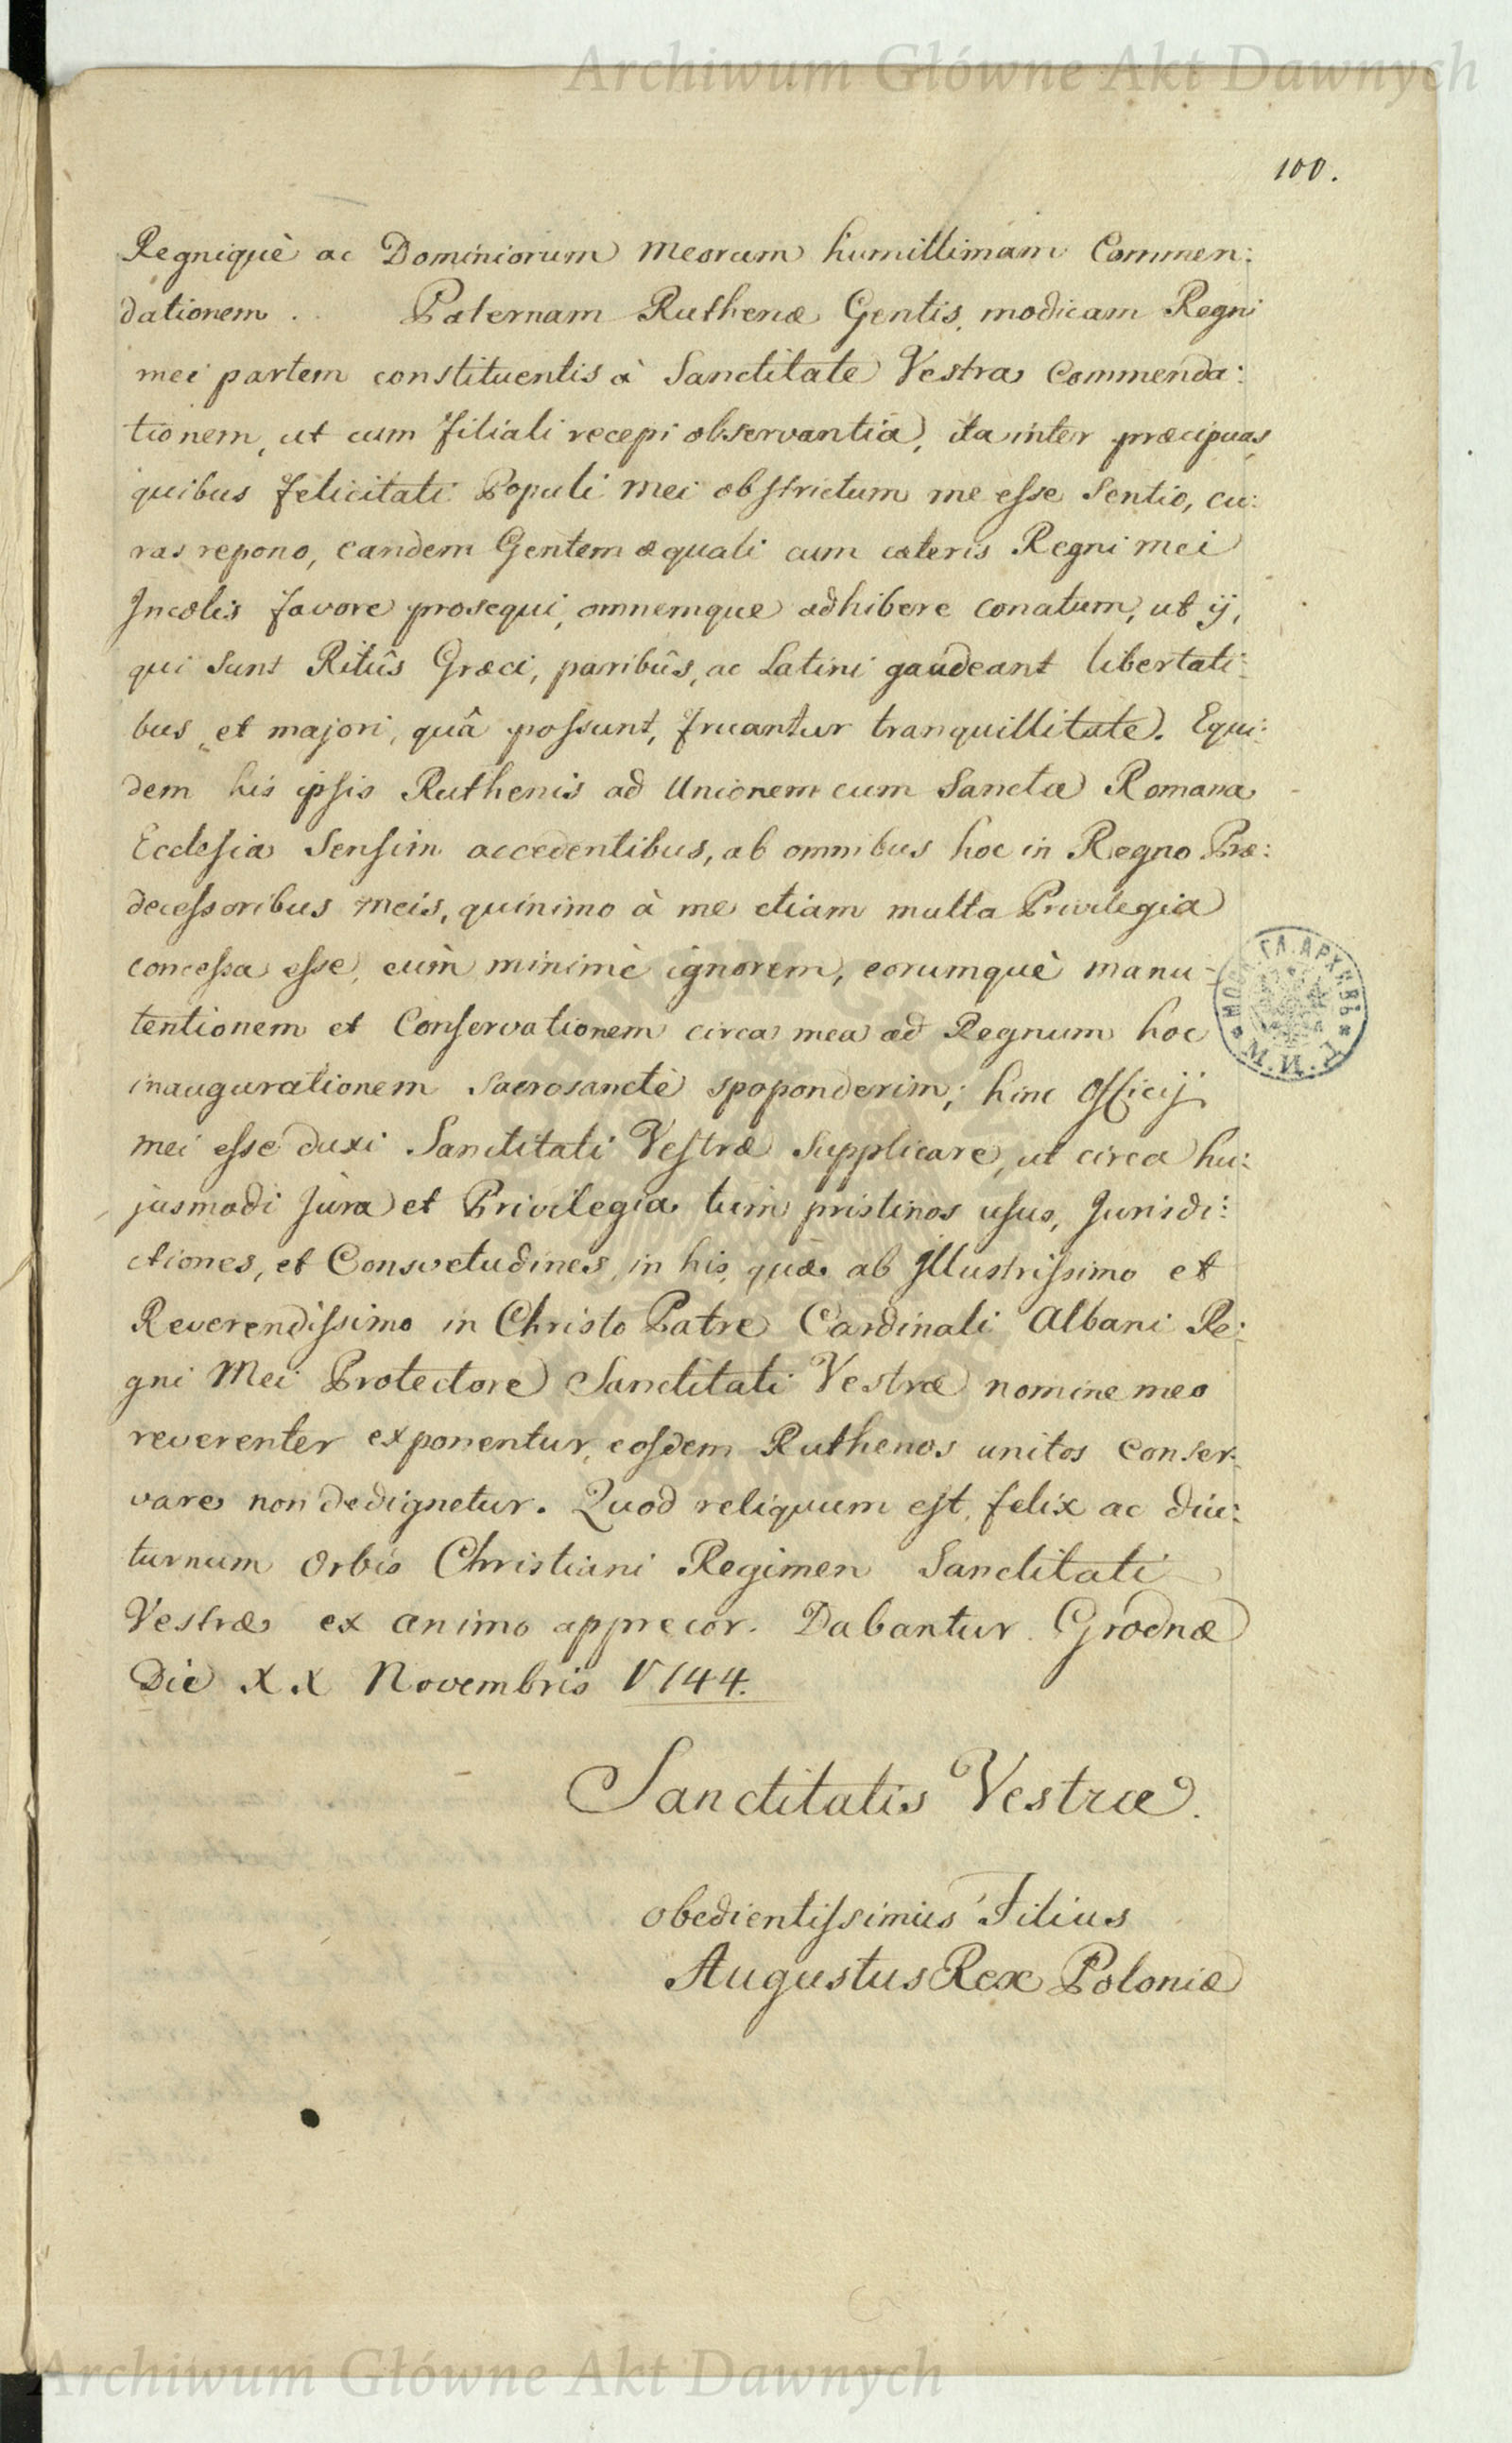 Archiwum Główne Akt Dawnych
100.
Regniquè ac Dominiorum meorum humillimam Commen:
dationem. Paternam Ruthenæ Gentis, modicam Regni
mei partem constituentis à Sanctitate Vestra Commenda:
tionem, ut cum filiali recepi observantia, ita inter præcipuas,
quibus felicitati Populi mei obstrictum me esse Sentio, cu:
ras repono, eandem Gentem æquali cum cæteris Regni mei
Incolis favore prosequi, omnemque adhibere conatum, ut ij,
qui Sunt Ritûs Græci, paribûs, ac Latini gaudeant libertati:
bus, et majori, quâ possunt, fruantur tranquillitate. Equi:
dem his ipsis Ruthenis ad Unionem cum Sancta Romana
Ecclesia Sensim accedentibus, ab omnibus hoc in Regno Præ:
decessoribus meis, quinimo à me etiam multa Privilegia
concessa esse, cùm minimè ignorem, eorumquè manu-
tentionem et Conservationem circa mea ad Regnum hoc
inaugurationem Sacrosanctè spoponderim; hinc Officij
mei esse duxi Sanctitati Vestræ Supplicare, ut circa hu:
jusmodi Jura et Privilegia tum pristinos usus, Jurisdi:
ctiones, et Consvetudines, in his, quæ ab Illustrissimo et
Reverendissimo in Christo Patre Cardinali Albani Re:
gni Mei Protectore Sanctitati Vestræ nomine meo
reverenter exponentur, eosdem Ruthenos unitos conser-
vare non dedignetur. Quod reliquum est, felix ac diu:
turnum Orbis Christiani Regimen Sanctitati
Vestræ ex animo apprecor. Dabantur Grodnæ
Die XX Novembris 1744.
Sanctitatis Vestræ.
obedientissimus Filius
Augustus Rex Poloniæ
МОСК. ГЛ. АРХИВЪ * М. И. Д. *
Archiwum Główne Akt Dawnych